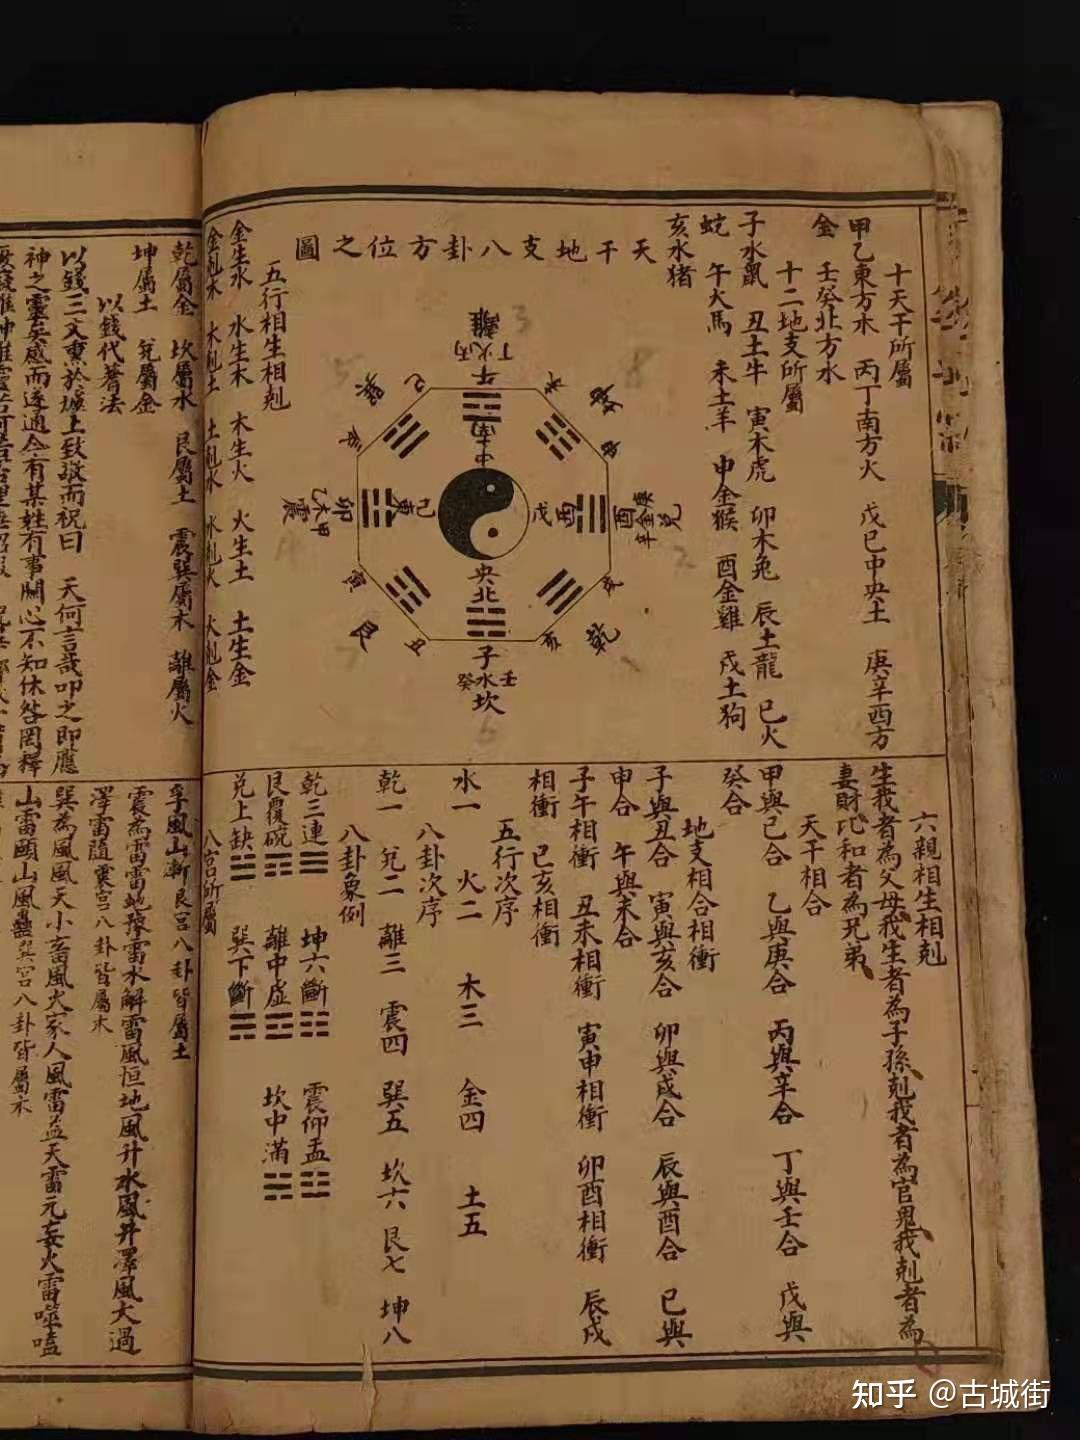 十天干所屬
甲乙東方木　丙丁南方火　戊己中央土　庚辛西方
金　壬癸北方水
十二地支所屬
子水鼠　丑土牛　寅木虎　卯木兔　辰土龍　巳火
蛇　午火馬　未土羊　申金猴　酉金雞　戌土狗
亥水猪
天干地支八卦方位之圖
離
丙火丁
午
南
中
巽
巳
未
坤
申
辰
甲木乙
震
卯
東
己
戊
酉
酉
庚金辛
兌
寅
艮
丑
央
北
子
壬水癸
坎
亥
乾
戌
五行相生相剋
金生水　水生木　木生火　火生土　土生金
金剋木　木剋土　土剋水　水剋火　火剋金
六親相生相剋
生我者為父母我生者為子孫剋我者為官鬼我剋者為
妻財比和者為兄弟
天干相合
甲與己合　乙與庚合　丙與辛合　丁與壬合　戊與
癸合
地支相合相衝
子與丑合　寅與亥合　卯與戌合　辰與酉合　巳與
申合　午與未合
子午相衝　丑未相衝　寅申相衝　卯酉相衝　辰戌
相衝　巳亥相衝
五行次序
水一　火二　木三　金四　土五
八卦次序
乾一　兌二　離三　震四　巽五　坎六　艮七　坤八
八卦象例
乾三連☰　坤六斷☷　震仰盂☳
艮覆碗☶　離中虛☲　坎中滿☵
兌上缺☱　巽下斷☴
八宮所屬
乾屬金　坎屬水　艮屬土　震巽屬木　離屬火
坤屬土　兌屬金
以錢代蓍法
以錢三文熏於爐上致敬而祝曰　天何言哉叩之即應
神之靈矣感而遂通今有某姓有事關心不知休咎罔釋
孚風山漸艮宮八卦皆屬土
震為雷雷地豫雷水解雷風恒地風升水風井澤風大過
澤雷隨震宮八卦皆屬木
巽為風風天小畜風火家人風雷益天雷无妄火雷噬嗑
山雷頤山風蠱巽宮八卦皆屬木
知乎 @古城街